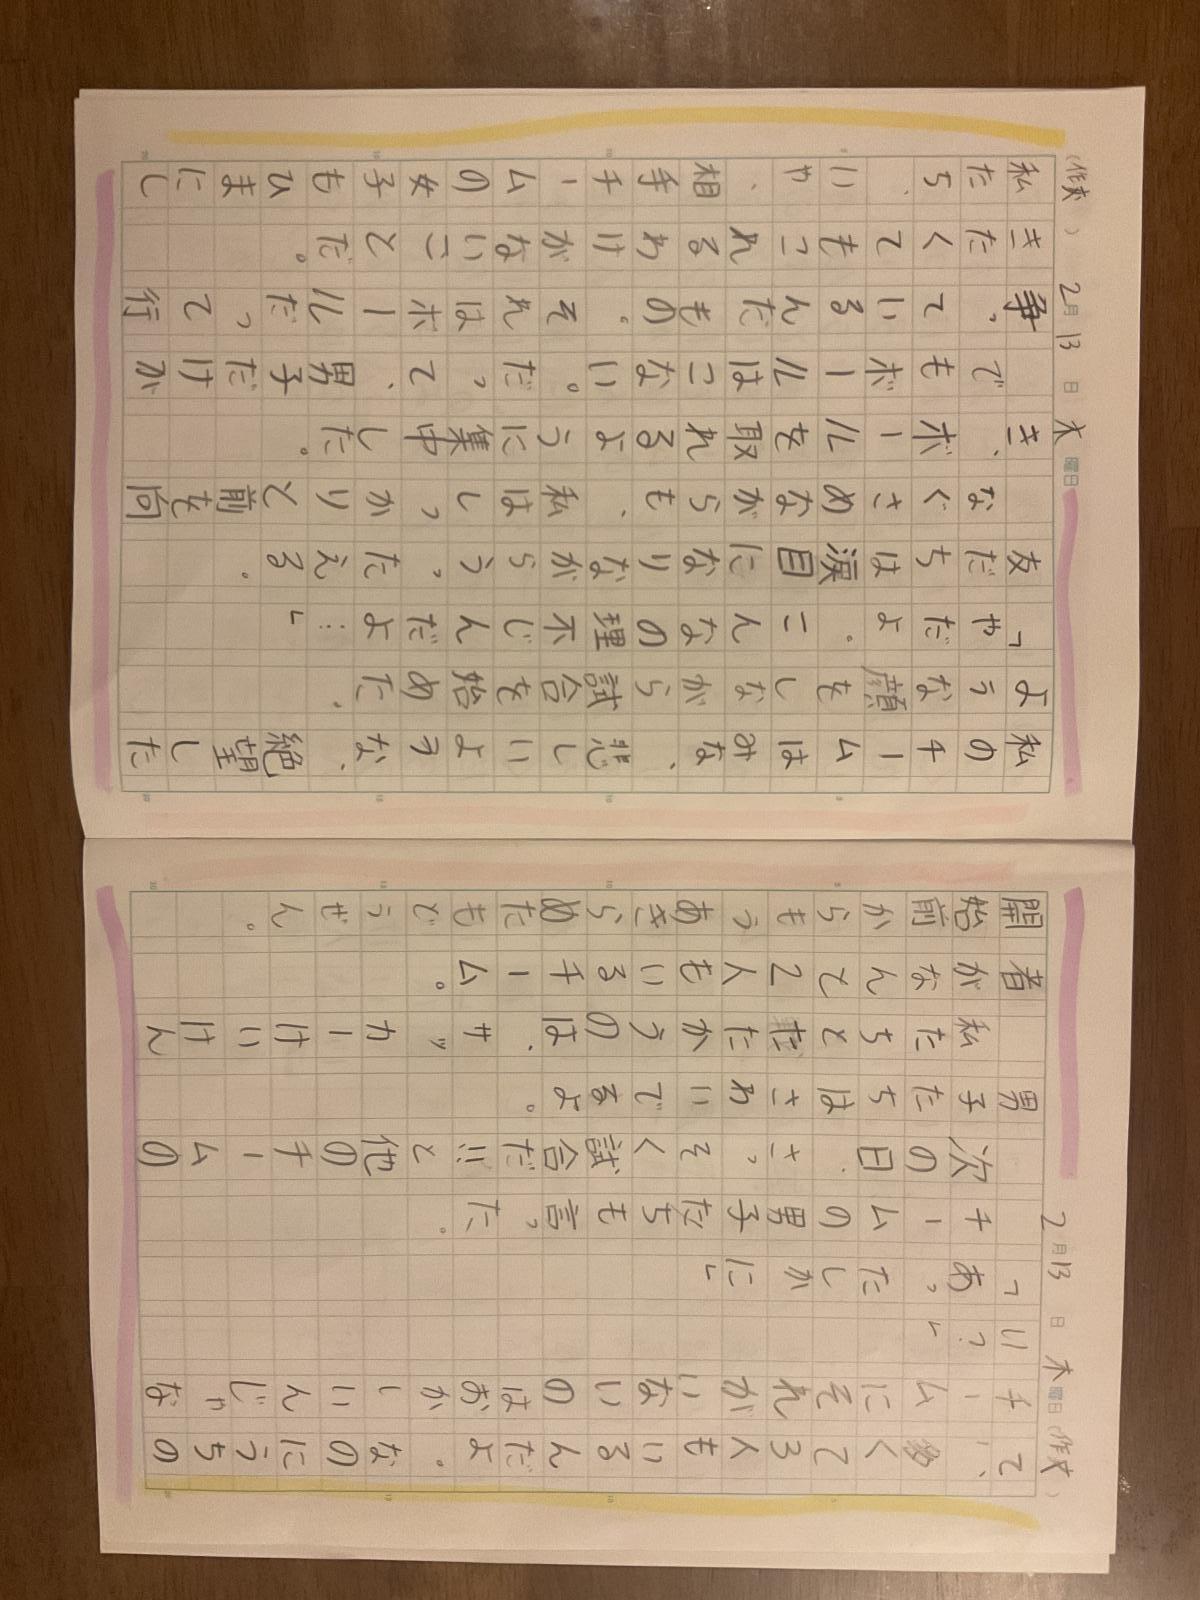 2月13日木曜日(作文)
て、多くて3人もいるんだよ。なのにうちの
チームにそれがいないのはおかしいんじゃな
い?」
「あっ、たしかに」
チームの男子たちも言った。
次の日。さっそく試合だ!!と他のチームの
男子たちはさわいでるよ。
私たちとたたかうのは、サッカーけいけん
者がなんと2人もいるチーム。
開始前からもうあきらめたもどうぜん。
(作文)2月13日木曜日
私のチームはみな、悲しいような、絶望した
ような顔をしながら試合を始めた。
「やだよ。こんなの理不じんだよ…」
友だちは涙目になりながらうったえる。
なぐさめながらも、私はしっかりと前を向
き、ボールを取れるように集中した。
でもボールはこない。だって、男子だけが
争っているんだもの。それはボールだって行
きたくてもこれるわけがないことだ。
私たち、いや、相手チームの女子もひまにし